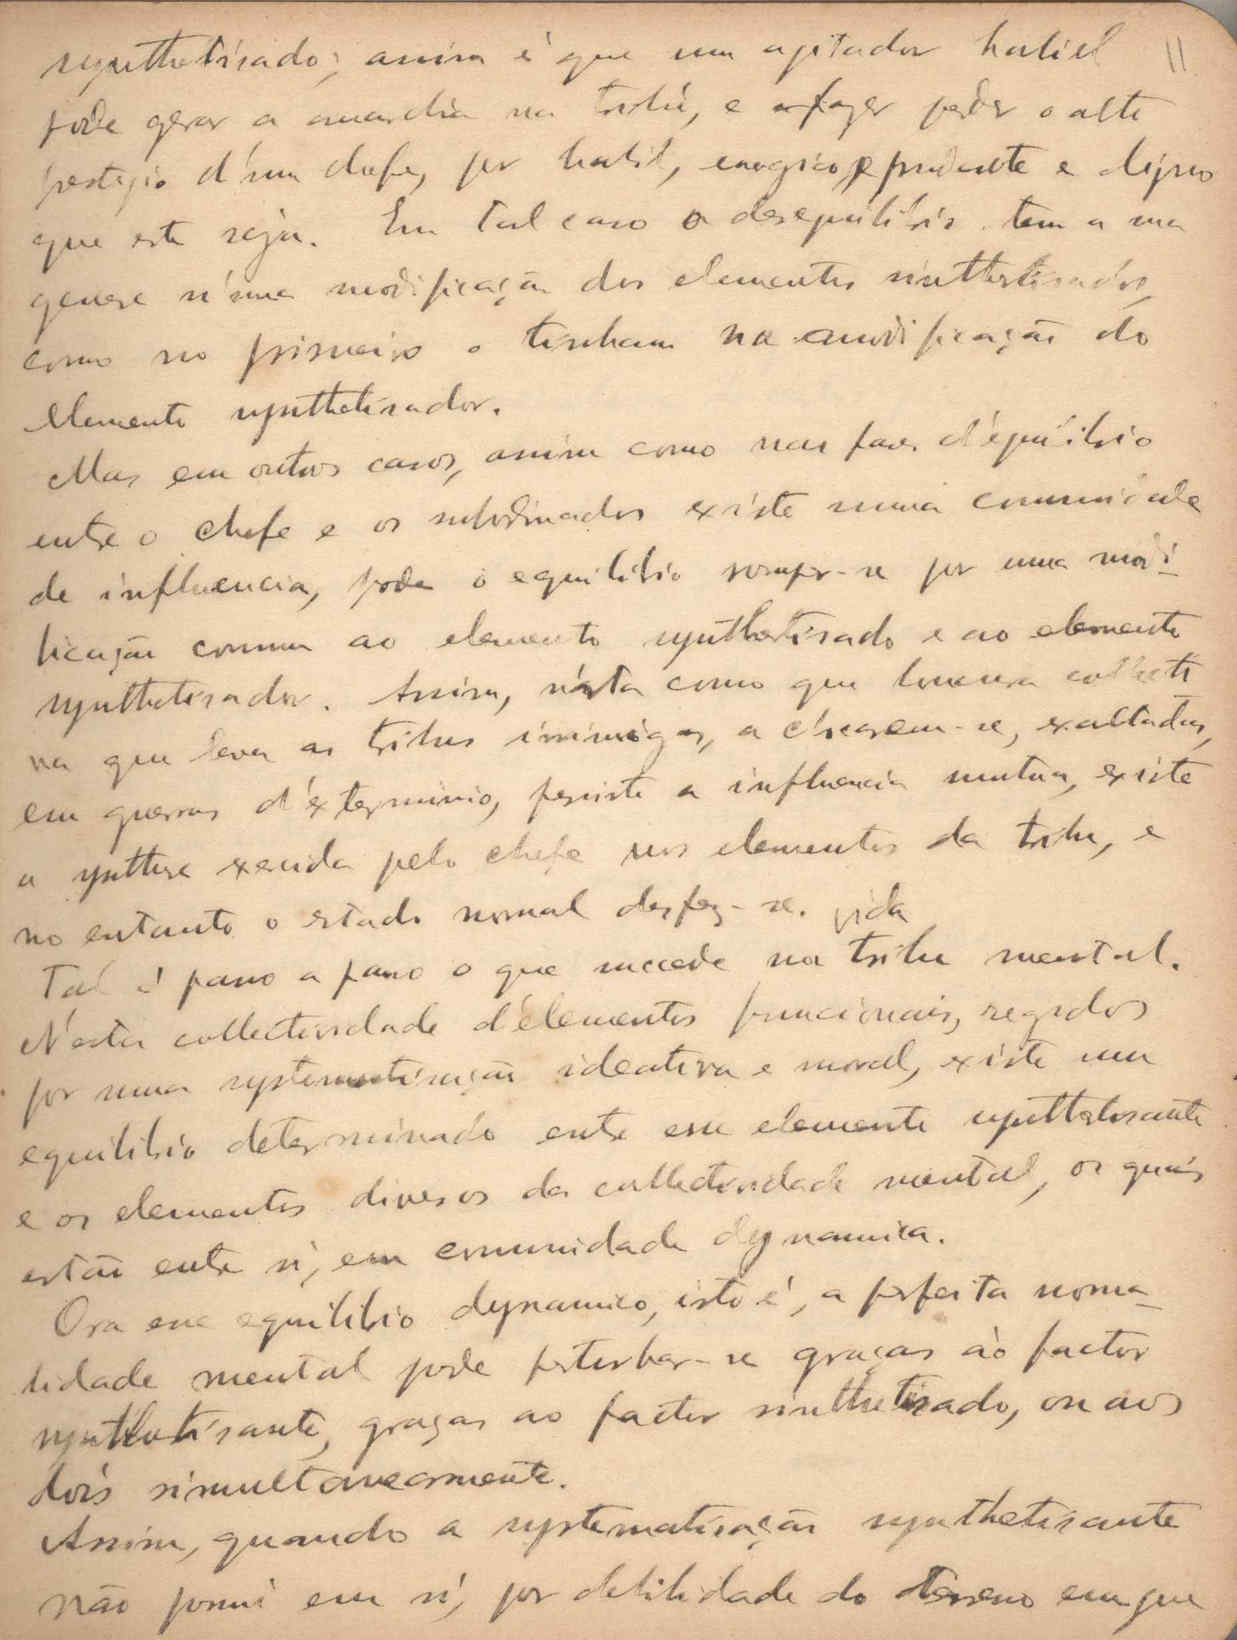 synthetisado; assim é que um agitador habil 11
póde gerar a anarchia na tribu, e fazer perder o alto
prestigio d'um chefe, por habil, energico, prudente e digno
que este seja. Em tal caso o desequilibrio tem a sua
genese n'uma modificação dos elementos sinthetisados,
como no primeiro o tinham na modificação do
elemento synthetisador.
Mas em outros casos, assim como nas fases d'équilibrio
entre o chefe e os subordinados existe numa comunidade
de influencia, póde o equilibrio romper-se por uma modi-
ficação comum ao elemento synthetisado e ao elemento
synthetisador. Assim, n'esta como que loucura collecti
va que leva as tribus inimigas, a encararem-se, exaltadas,
em guerras d'éxterminio, persiste a influencia mutua, existe
a synthese exercida pelo chefe nos elementos da tribu, e
no entanto o estado normal desfez-se. vida
Tal é passo a passo o que succede na tribu mental.
N'esta collectividade d'élementos funcionais, regidos
por uma systematisação ideativa e moral, existe um
equilibrio determinado entre esse elemento synthetisante
e os elementos diversos da collectividade mental, os quais
estão entre si, em comunidade dynamica.
Ora esse equilibrio dynamico, isto é, a perfeita norma-
lidade mental póde perturbar-se graças ao factor
synthetisante, graças ao factor sinthetisado, ou aos
dois simultaneamente.
Assim, quando a systematisação synthetisante
não possui em si, por debilidade do terreno em que